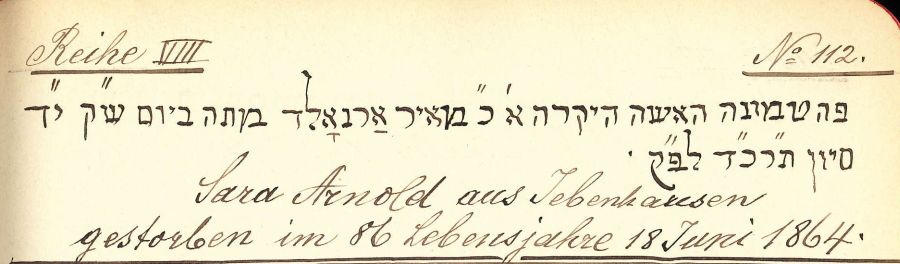 Reihe VIII No 112.
פה טמונה האשה היקרה א' כ" מאיר אַרנאָלד מתה ביום ש"ק י"ד
סיון תר"כ"ד לפ"ק.
Sara Arnold aus Jebenhausen
gestorben im 86 Lebensjahre 18 Juni 1864.